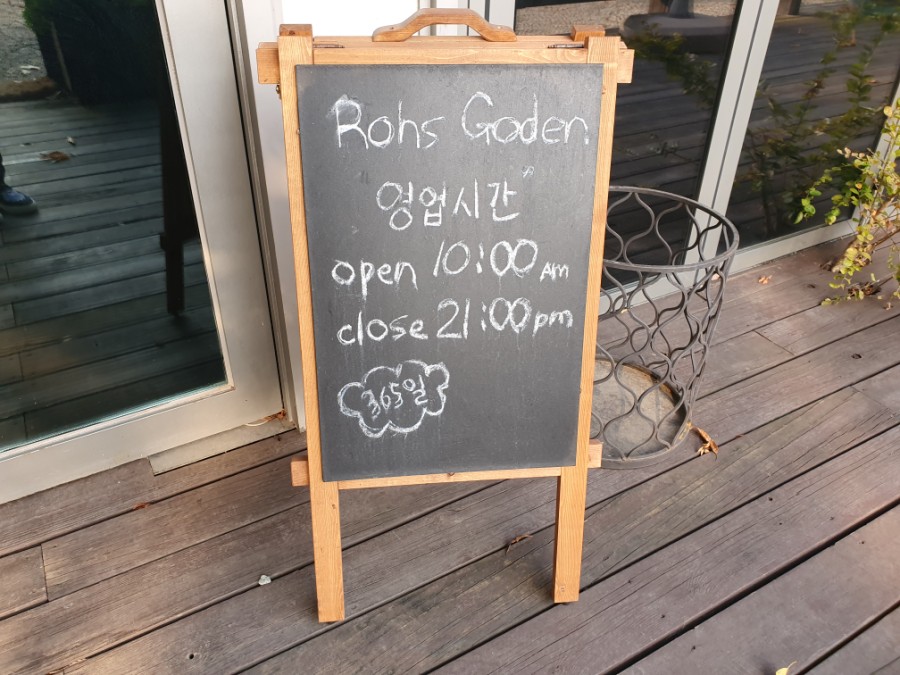 Rohs Goden
영업시간"
open 10:00 AM
close 21:00 pm
365일